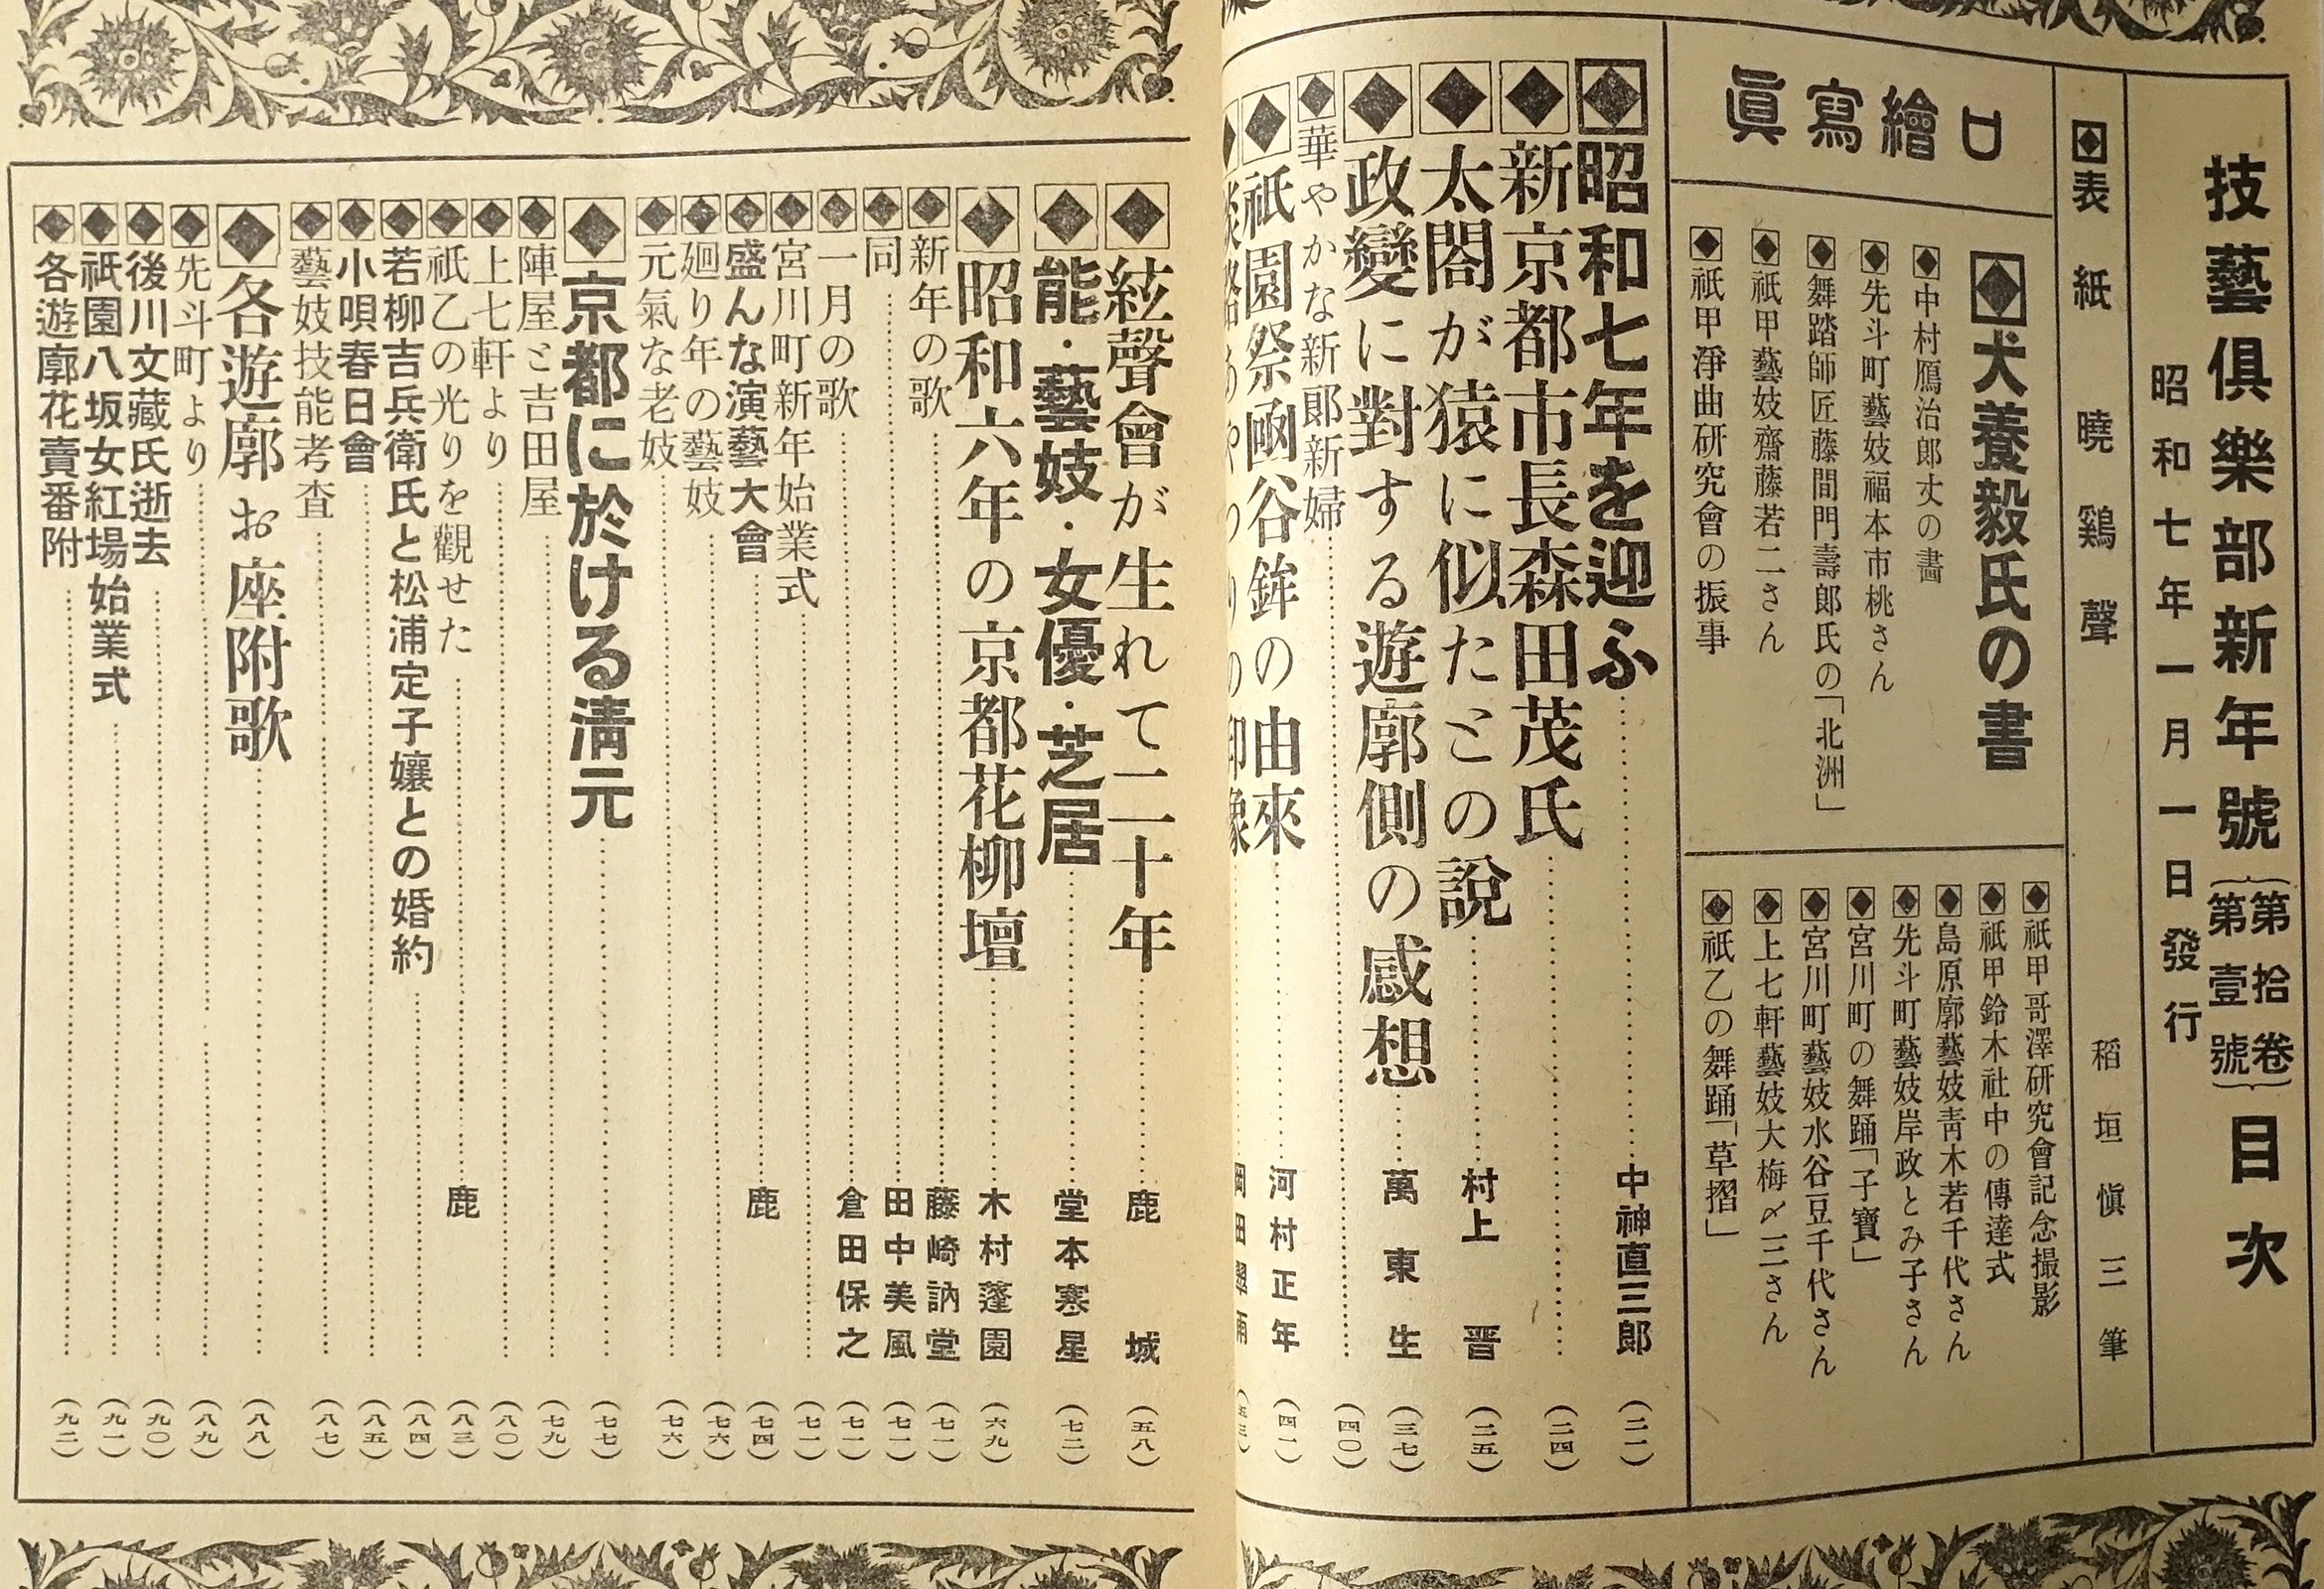 技藝倶樂部新年號 第拾卷 第壹號 目次
昭和七年一月一日發行
表紙 曉鷄聲 稻垣愼三筆
口繪寫眞
◆犬養毅氏の書
◆中村鴈治郎丈の書
◆先斗町藝妓福本市桃さん
◆舞踏師匠藤間門壽郎氏の「北洲」
◆祇甲藝妓齋藤若二さん
◆祇甲淨曲硏究會の振事
◆祇甲哥澤硏究會記念撮影
◆祇甲鈴木社中の傳達式
◆島原廓藝妓靑木若千代さん
◆先斗町藝妓岸政とみ子さん
◆宮川町の舞踊「子寶」
◆宮川町藝妓水谷豆千代さん
◆上七軒藝妓大梅〆三さん
◆祇乙の舞踊「草摺」
◆昭和七年を迎ふ 中神直三郎 (二一)
◆新京都市長森田茂氏 (二四)
◆太閤が猿に似たとの說 村上晋 (二五)
◆政變に對する遊廓側の感想 萬東生 (三七)
◆華やかな新郎新婦 (四〇)
◆祇園祭凾谷鉾の由來 河村正年 (四一)
◆絃聲會が生れて二十年 鹿城 (五八)
◆能・藝妓・女優・芝居 堂本寒星 (七二)
◆昭和六年の京都花柳壇 木村蓬園 (六九)
◆新年の歌 藤崎訥堂 (七一)
◆同 田中美風 (七一)
◆一月の歌 倉田保之 (七一)
◆宮川町新年始業式 (七一)
◆盛んな演藝大會 鹿 (七四)
◆廻り年の藝妓 (七六)
◆元氣な老妓 (七六)
◆京都に於ける淸元 (七七)
◆陣屋と吉田屋 (七九)
◆上七軒より (八〇)
◆祇乙の光りを觀せた 鹿 (八三)
◆若柳吉兵衛氏と松浦定子孃との婚約 (八四)
◆小唄春日會 (八五)
◆藝妓技能考査 (八七)
◆各遊廓お座附歌 (八八)
◆先斗町より (八九)
◆後川文藏氏逝去 (九〇)
◆祇園八坂女紅場始業式 (九一)
◆各遊廓花賣番附 (九二)